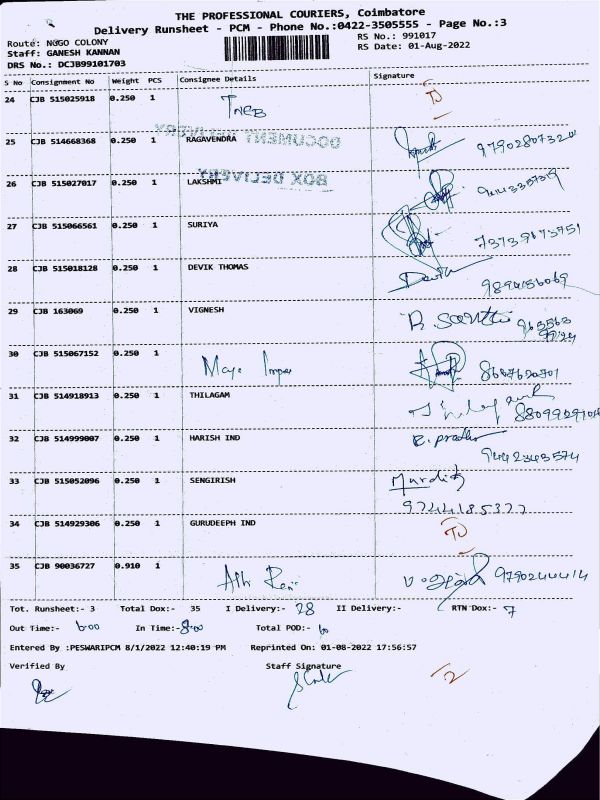 THE PROFESSIONAL COURIERS, Coimbatore
Delivery Runsheet - PCM - Phone No.:0422-3505555 - Page No.:3
Route: NGGO COLONY RS No.: 991017
Staff: GANESH KANNAN RS Date: 01-Aug-2022
DRS No.: DCJB99101703
S No Consignment No Weight PCS Consignee Details Signature
24 CJB 515025918 0.250 1 TNEB
DOCUMENT DELIVERY
25 CJB 514668368 0.250 1 RAGAVENDRA
BOX DELIVERY
26 CJB 515027017 0.250 1 LAKSHMI
27 CJB 515066561 0.250 1 SURIYA
28 CJB 515018128 0.250 1 DEVIK THOMAS 9894156069
29 CJB 163069 0.250 1 VIGNESH
30 CJB 515067152 0.250 1 8687620701
31 CJB 514918913 0.250 1 THILAGAM
32 CJB 514999007 0.250 1 HARISH IND 9442343574
33 CJB 515052096 0.250 1 SENGIRISH
34 CJB 514929306 0.250 1 GURUDEEPH IND
35 CJB 90036727 0.910 1
Tot. Runsheet:- 3 Total Dox:- 35 I Delivery:- 28 II Delivery:- RTN Dox:- 7
Out Time:- 6.00 In Time:- 8.00 Total POD:-
Entered By :PESWARIPCM 8/1/2022 12:40:19 PM Reprinted On: 01-08-2022 17:56:57
Verified By Staff Signature